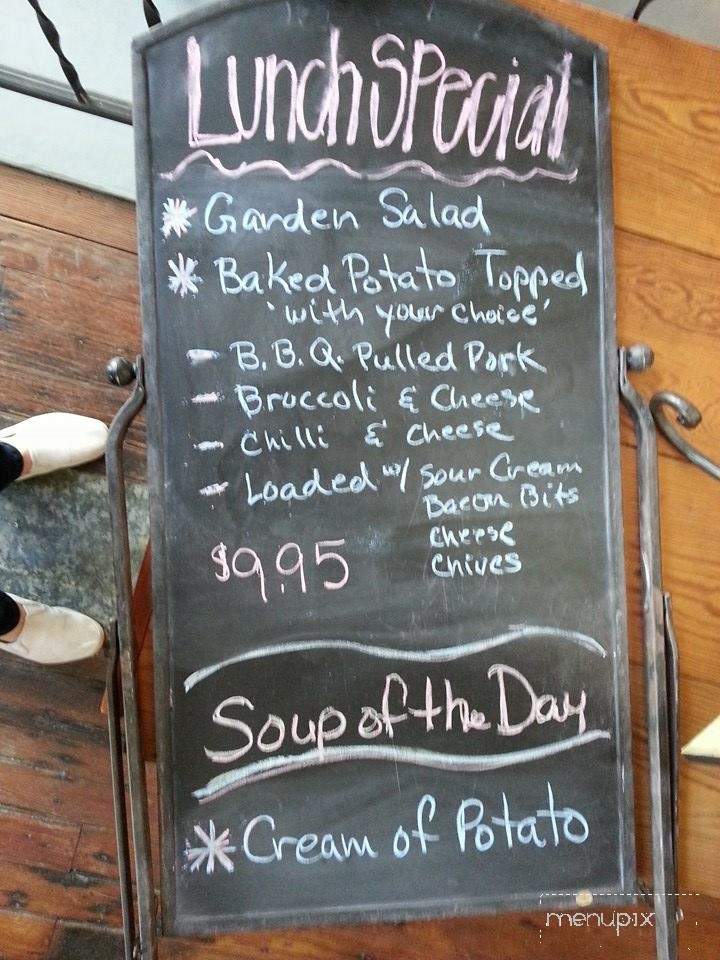 Lunch Special
* Garden Salad
* Baked Potato Topped
'with your choice'
- B.B.Q. Pulled Pork
- Broccoli & Cheese
- Chilli & Cheese
- Loaded w/ Sour Cream
Bacon Bits
Cheese
Chives
$9.95
Soup of the Day
* Cream of Potato
menupix